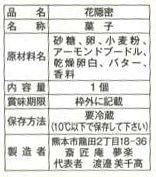 品名 花隠密
名称 菓子
原材料名 砂糖、卵、小麦粉、
アーモンドプードル、
乾燥卵白、バター、
香料
内容量 1個
賞味期限 枠外に記載
保存方法 要冷蔵
(10℃以下で保存して下さい)
製造者 熊本市龍田2丁目18-36
斎匠庵 夢楽
代表者 渡邉美千高